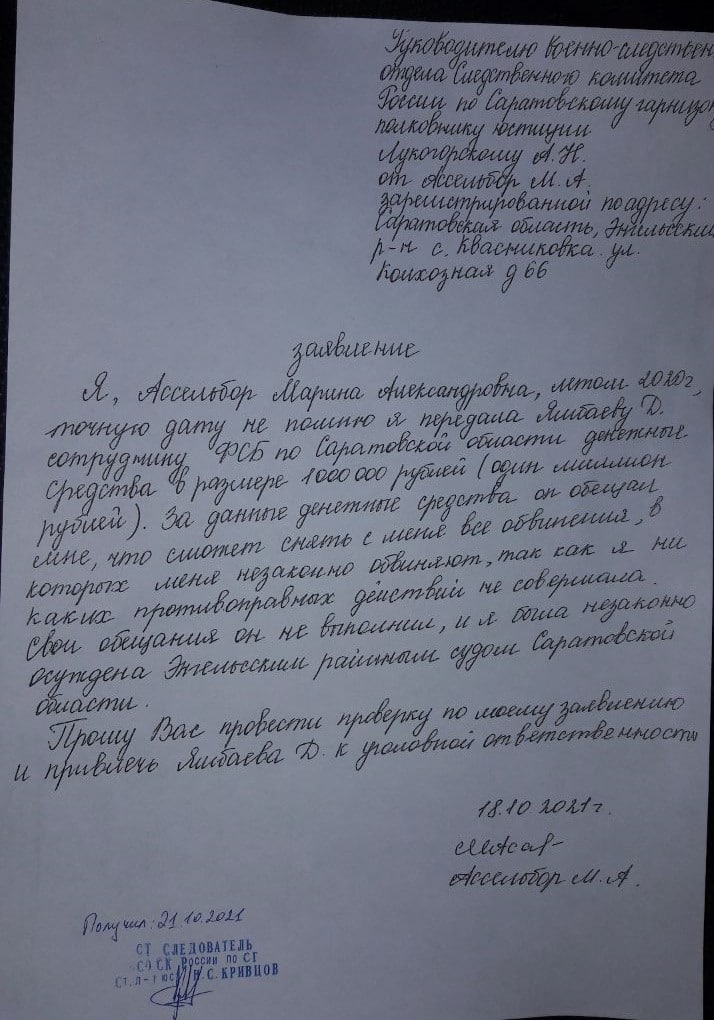 Руководителю военно-следствен
отдела Следственного комитета
России по Саратовскому гарнизо
полковнику юстиции
Лукогорскому А.Н.
от Ассельбор М.А.
зарегистрированной по адресу:
Саратовская область, Энгельсский
р-н с. Квасниковка ул.
Колхозная д 66
заявление
Я, Ассельбор Марина Александровна, летом 2020г,
точную дату не помню я передала Яшбаеву Д.
сотруднику ФСБ по Саратовской области денежные
средства в размере 1000 000 рублей (один миллион
рублей). За данные денежные средства он обещал
мне, что сможет снять с меня все обвинения, в
которых меня незаконно обвиняют, так как я ни
каких противоправных действий не совершала.
Свои обещания он не выполнил, и я была незаконно
осуждена Энгельсским районным судом Саратовской
области.
Прошу Вас провести проверку по моему заявлению
и привлечь Яшбаева Д. к уголовной ответственности
18.10 2021г.
Ассельбор М. А.
Получил: 21.10.2021
СТ СЛЕДОВАТЕЛЬ
ВСО СК России по СГ
Ст. л-т юст. Н.С. КРИВЦОВ